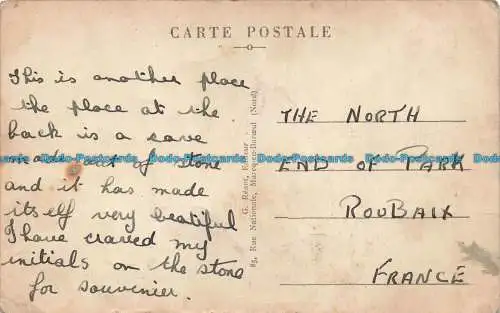 CARTE POSTALE
This is another place
the place at the
back is a save
made out of stone
and it has made
itself very beatiful
I have craved my
initials on the stone
for souvenier.
G. Réant, Editeur
85, Rue Nationale, Marcq-en-Barœul (Nord)
THE NORTH
END OF PARK
ROUBAIX
FRANCE
Bodo-Postcards.co.uk Bodo-Postcards.co.uk Bodo-Postcards.co.uk